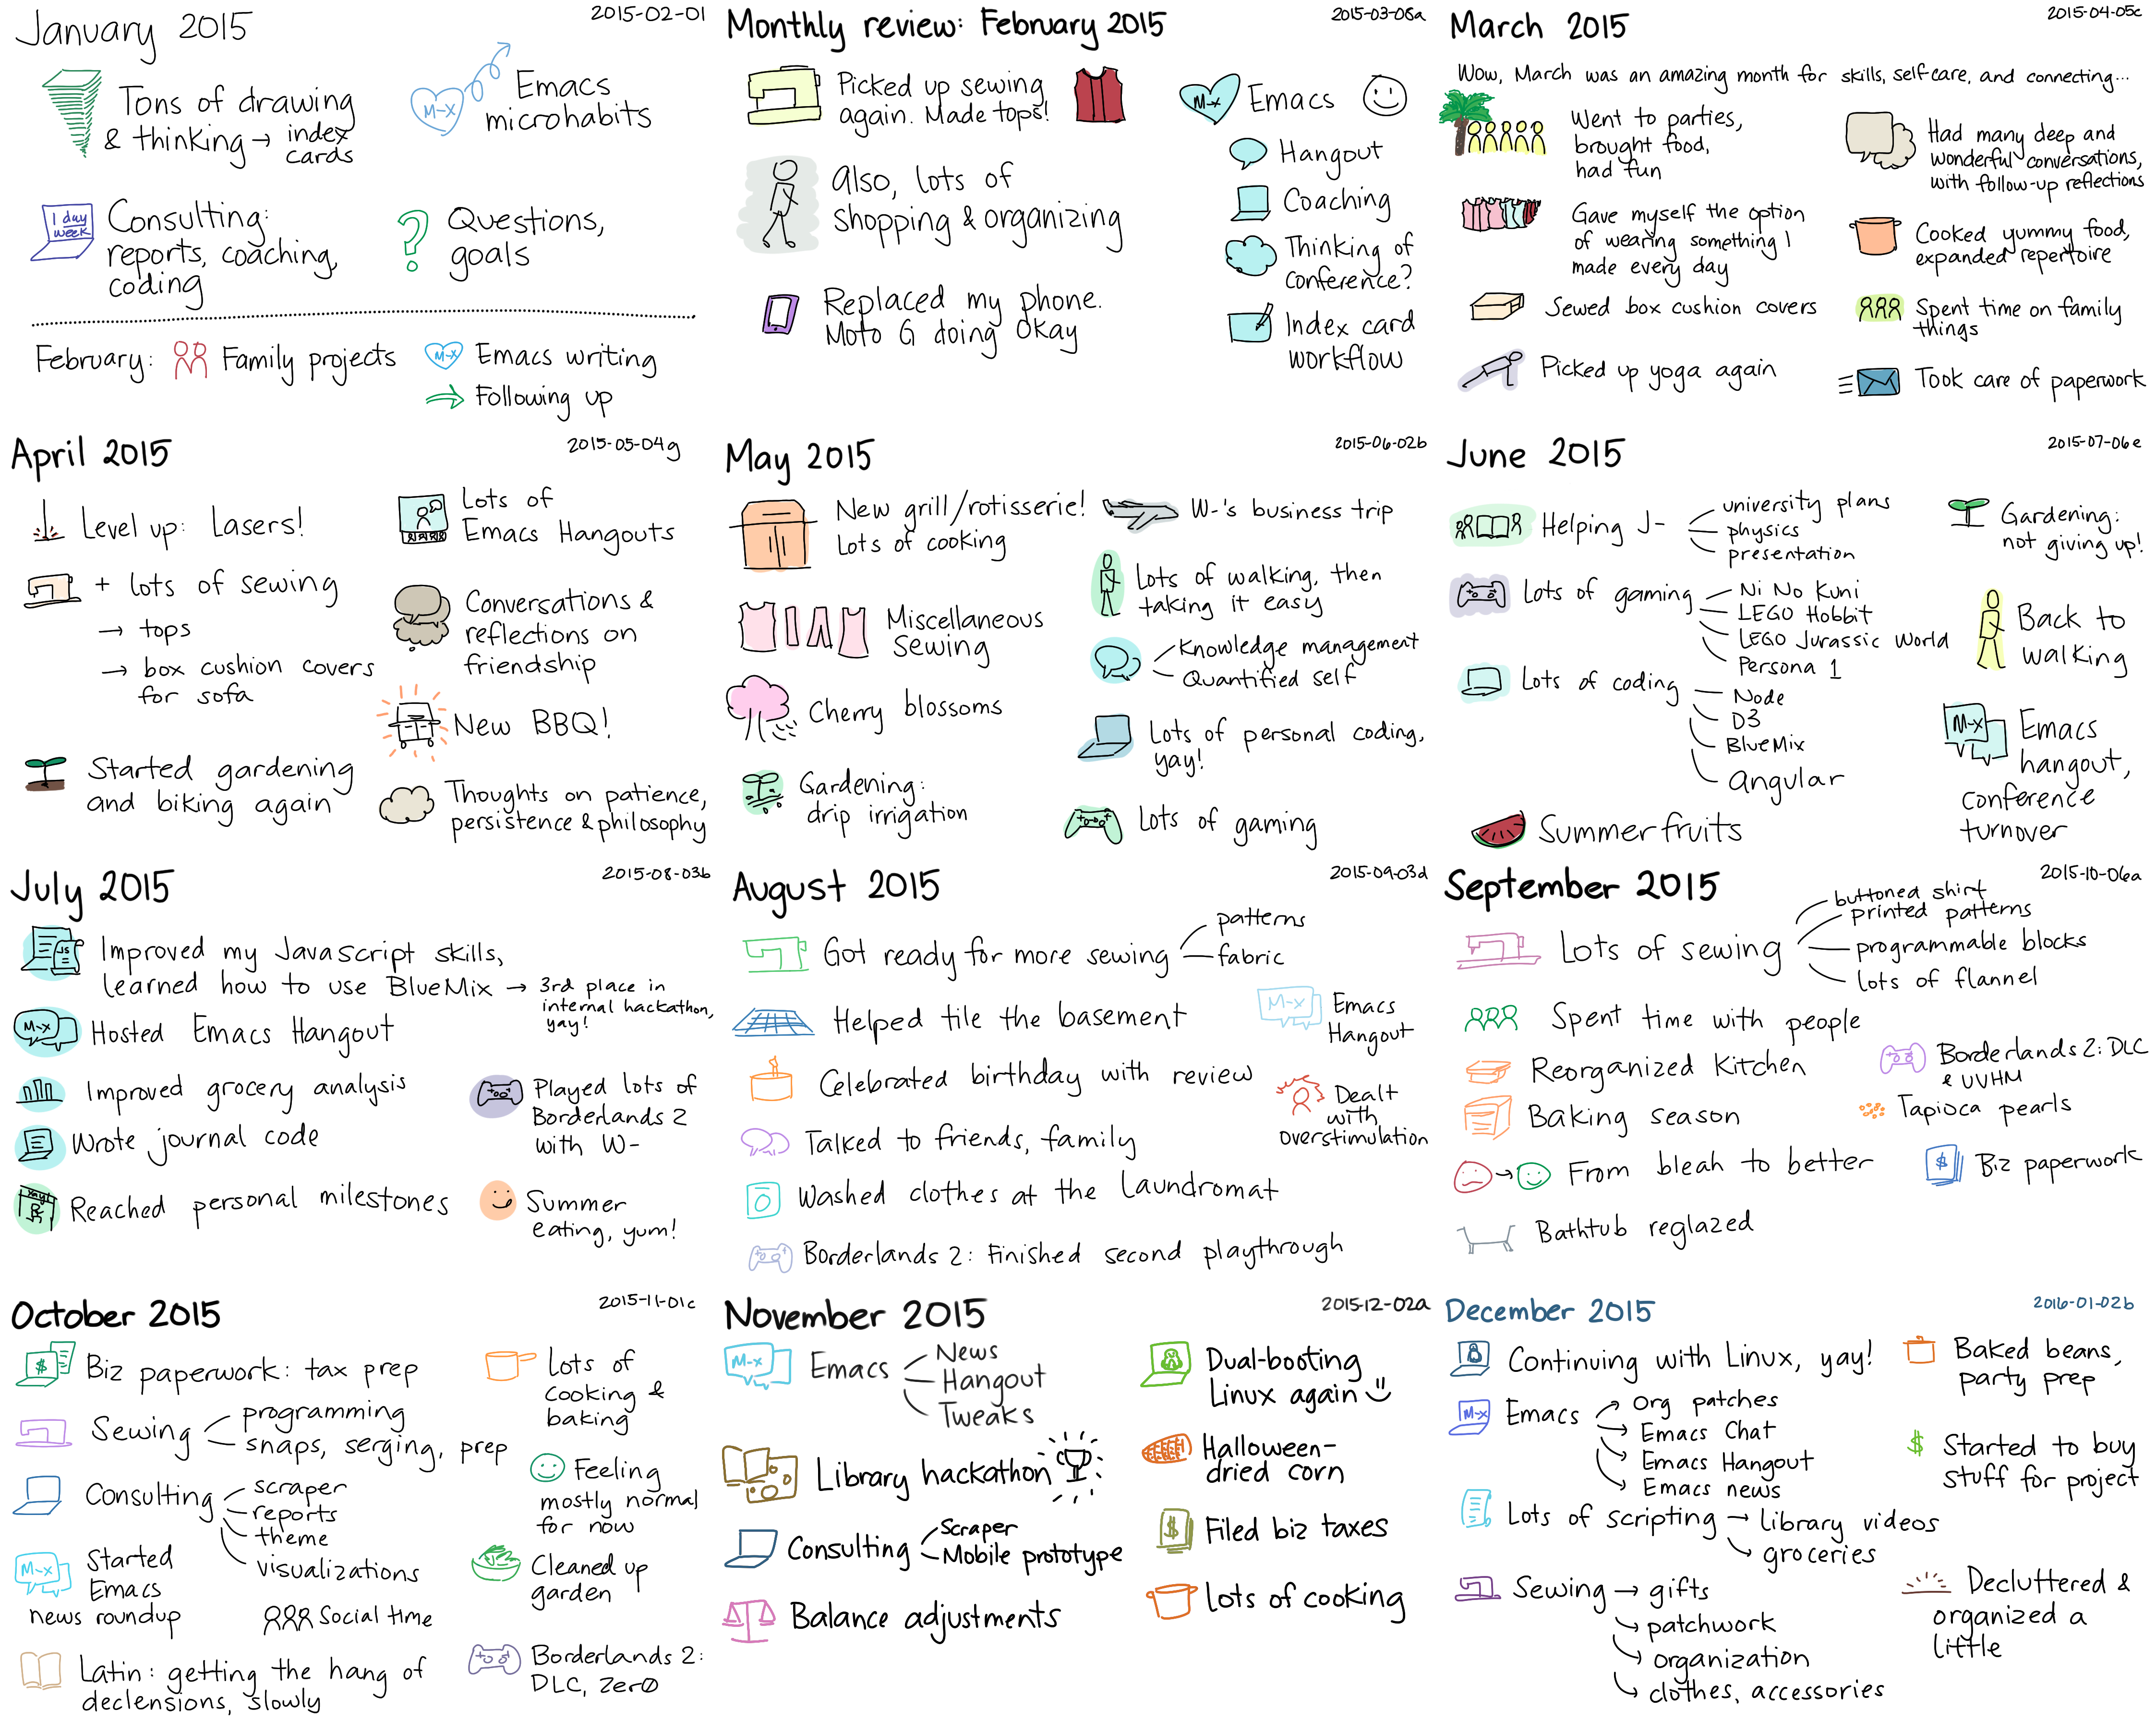 January 2015
2015-02-01
Tons of drawing
& thinking → index
cards
M-x
Emacs
microhabits
1 day
week
Consulting:
reports, coaching,
coding
?
Questions,
goals
February:
Family projects
M-x
Emacs writing
Following up
Monthly review: February 2015
2015-03-08a
Picked up sewing
again. Made tops!
Also, lots of
shopping & organizing
Replaced my phone.
Moto G doing okay
M-x
Emacs
Hangout
Coaching
Thinking of
conference?
Index card
workflow
March 2015
2015-04-05c
Wow, March was an amazing month for skills, self-care, and connecting...
Went to parties,
brought food,
had fun
Gave myself the option
of wearing something I
made every day
Sewed box cushion covers
Picked up yoga again
Had many deep and
wonderful conversations,
with follow-up reflections
Cooked yummy food,
expanded repertoire
Spent time on family
things
Took care of paperwork
April 2015
2015-05-04g
Level up: Lasers!
+ lots of sewing
→ tops
→ box cushion covers
for sofa
Started gardening
and biking again
Lots of
Emacs Hangouts
Conversations &
reflections on
friendship
New BBQ!
Thoughts on patience,
persistence & philosophy
May 2015
2015-06-02b
New grill/rotisserie!
Lots of cooking
Miscellaneous
Sewing
Cherry blossoms
Gardening:
drip irrigation
W-'s business trip
Lots of walking, then
taking it easy
Knowledge management
Quantified self
Lots of personal coding,
yay!
Lots of gaming
June 2015
2015-07-06e
Helping J-
university plans
physics
presentation
Lots of gaming
Ni No Kuni
LEGO Hobbit
LEGO Jurassic World
Persona 1
Lots of coding
Node
D3
BlueMix
Angular
Summer fruits
Gardening:
not giving up!
Back to
walking
M-x
Emacs
hangout,
conference
turnover
July 2015
2015-08-03b
JS
Improved my Javascript skills,
learned how to use BlueMix → 3rd place in
internal hackathon,
yay!
M-x
Hosted Emacs Hangout
Improved grocery analysis
Wrote journal code
yay!
Reached personal milestones
Played lots of
Borderlands 2
with W-
Summer
eating, yum!
August 2015
2015-09-03d
Got ready for more sewing
patterns
fabric
Helped tile the basement
Celebrated birthday with review
Talked to friends, family
Washed clothes at the laundromat
Borderlands 2: Finished second playthrough
M-x
Emacs
Hangout
Dealt
with
overstimulation
September 2015
2015-10-06a
Lots of sewing
buttoned shirt
printed patterns
programmable blocks
lots of flannel
Spent time with people
Reorganized Kitchen
Baking season
From bleah to better
Bathtub reglazed
Borderlands 2: DLC
& UVHM
Tapioca pearls
$
Biz paperwork
October 2015
2015-11-01c
$
Biz paperwork: tax prep
Sewing
programming
snaps, serging, prep
Consulting
scraper
reports
theme
visualizations
M-x
Started
Emacs
news roundup
Social time
Latin: getting the hang of
declensions, slowly
Lots of
cooking &
baking
Feeling
mostly normal
for now
Cleaned up
garden
Borderlands 2:
DLC, Zer0
November 2015
2015-12-02a
M-x
Emacs
News
Hangout
Tweaks
Library hackathon
Consulting
Scraper
Mobile prototype
Balance adjustments
Dual-booting
Linux again
Halloween-
dried corn
$
Filed biz taxes
Lots of cooking
December 2015
2016-01-02b
Continuing with Linux, yay!
M-x
Emacs
Org patches
Emacs Chat
Emacs Hangout
Emacs news
Lots of scripting → library videos
groceries
Sewing → gifts
patchwork
organization
clothes, accessories
Baked beans,
party prep
$
Started to buy
stuff for project
Decluttered &
organized a
little